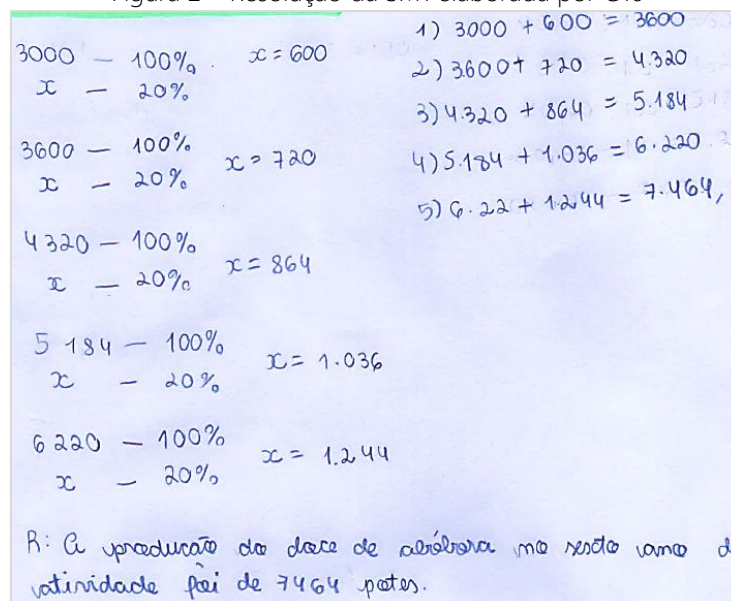 3000 — 100%. x = 600
x — 20%
3600 — 100%
x — 20% x = 720
4320 — 100%
x — 20% x = 864
5 184 — 100%
x — 20% x = 1.036
6 220 — 100%
x — 20% x = 1.244
1) 3000 + 600 = 3600
2) 3600 + 720 = 4.320
3) 4.320 + 864 = 5.184
4) 5.184 + 1.036 = 6.220
5) 6.22 + 1.244 = 7.464,
R: A produção do doce de abóbora no sexto ano d
atividade foi de 7464 potes.